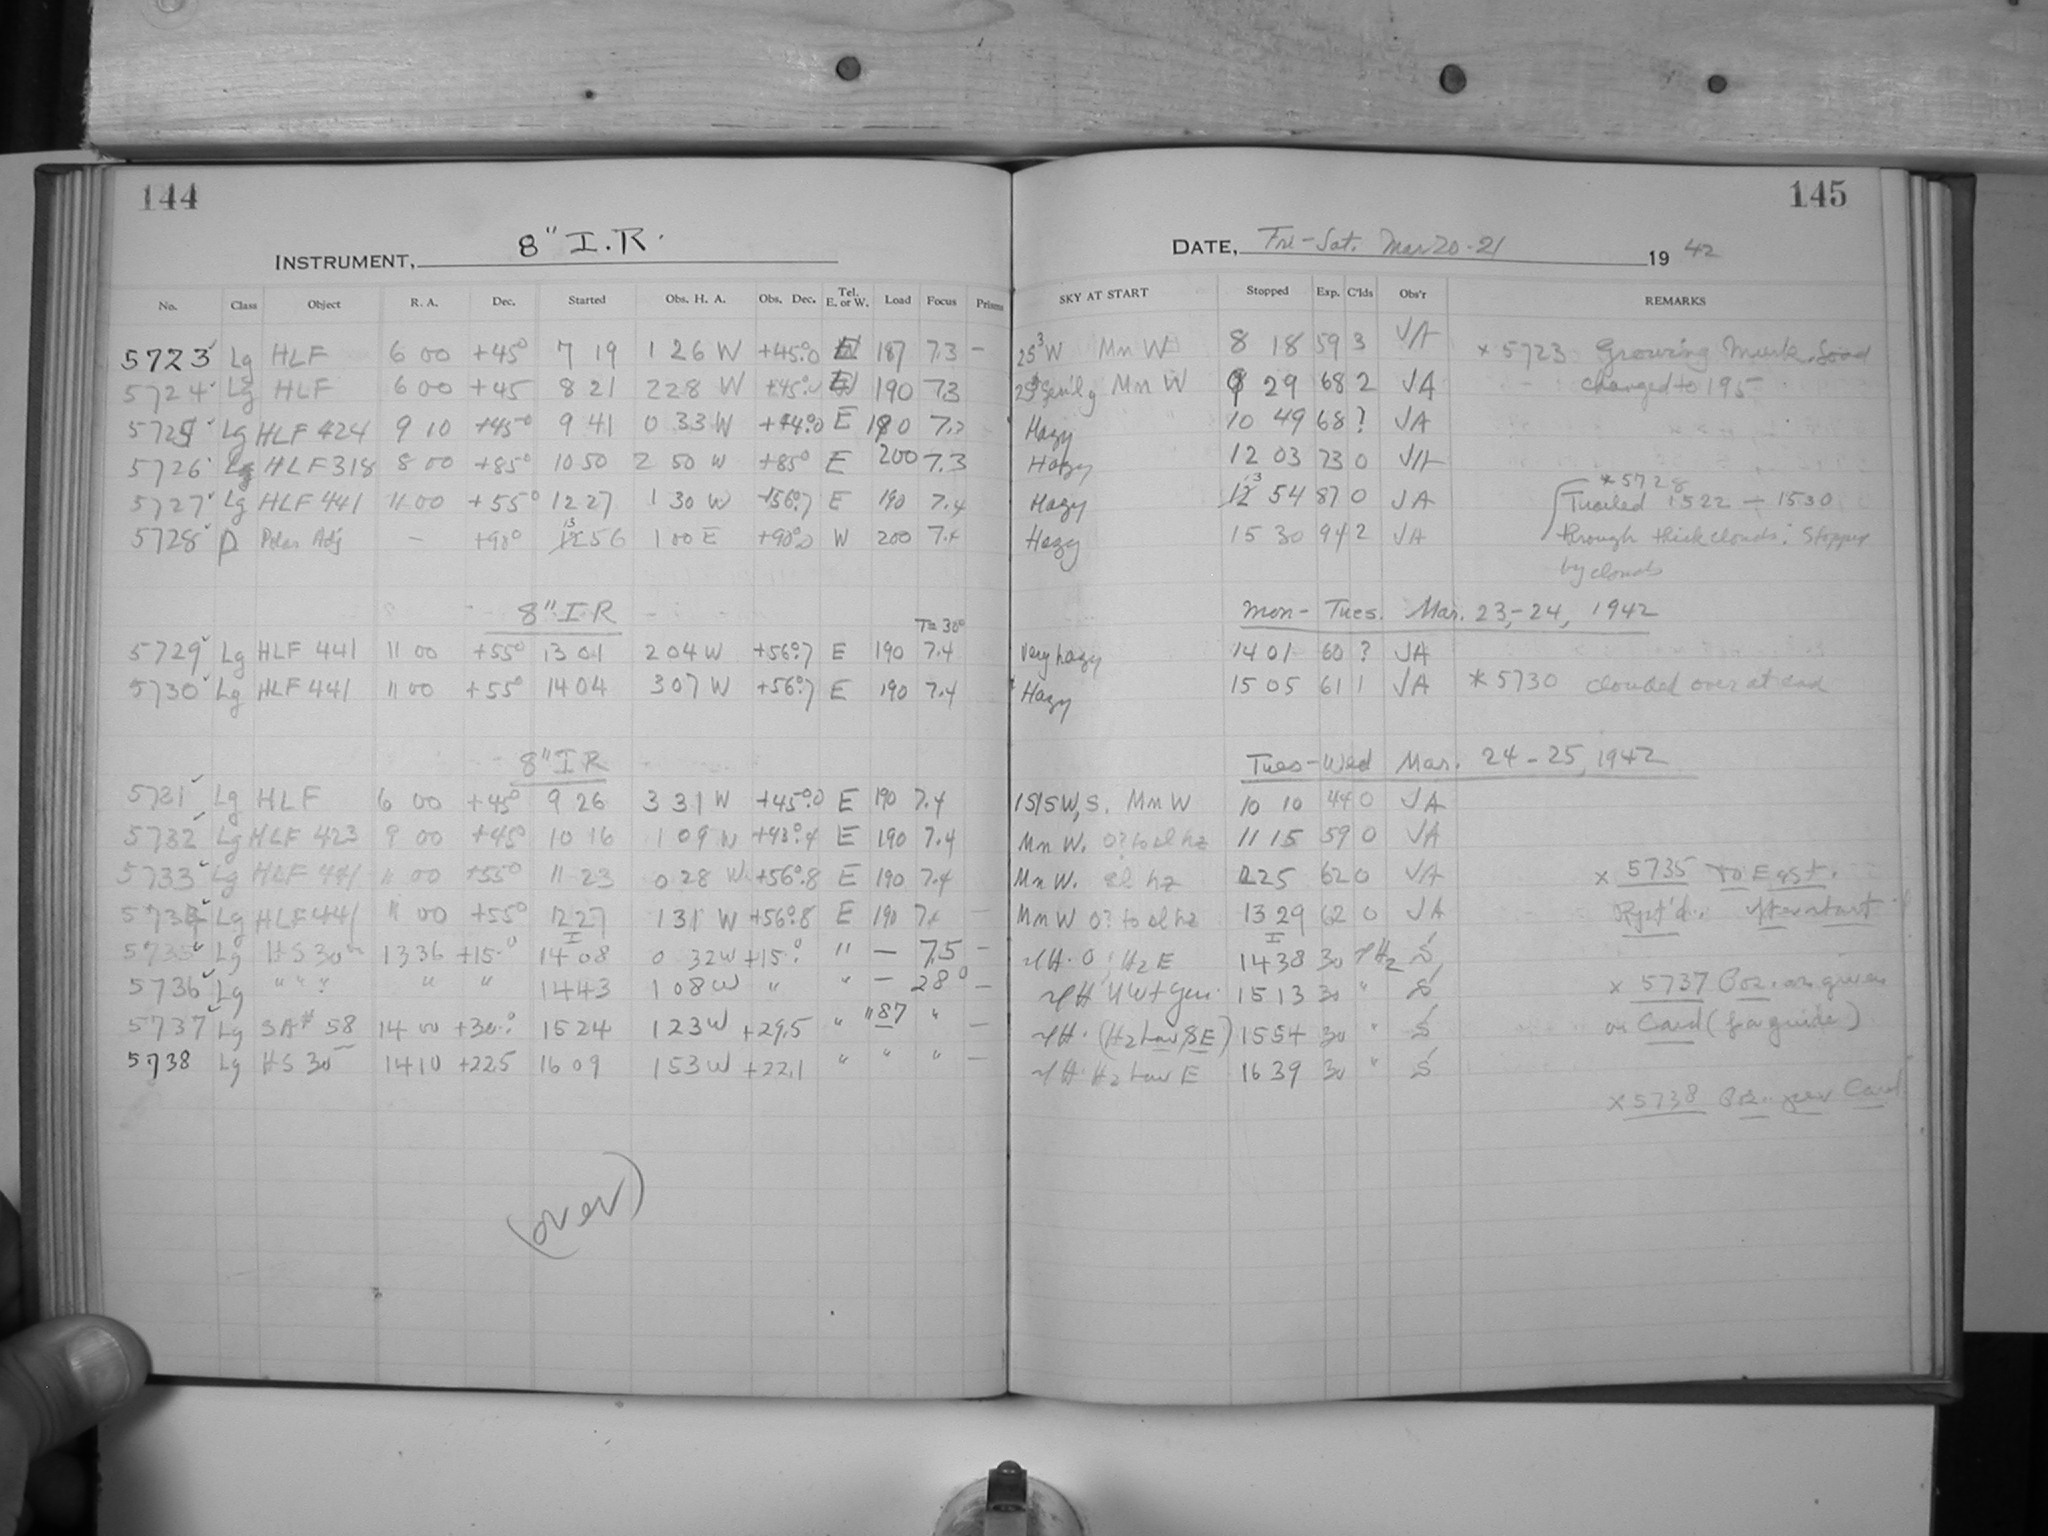 144
145
INSTRUMENT, 8" I.R.
DATE, Fri-Sat. Mar 20-21 1942
No. Class Object R. A. Dec. Started Obs. H. A. Obs. Dec. Tel. E. or W. Load Focus Prisms SKY AT START Stopped Exp. C'lds Obs'r REMARKS
5723 Lg HLF 6 00 +45° 7 19 1 26 W +45.°0 187 7.3 - 25³W Mn W 8 18 59 3 JA x 5723 Growing Murk. Load
5724 Lg HLF 6 00 +45 8 21 2 28 W +45.°0 190 73 Mn W 9 29 68 2 JA changed to 195
5725 Lg HLF 424 9 10 +45° 9 41 0 33 W +44.°0 E 190 7.3 Hazy 10 49 68 ? JA
5726 Lg HLF 318 8 00 +85° 10 50 2 50 W +85° E 200 7.3 Hazy 12 03 73 0 JA
5727 Lg HLF 441 11 00 +55° 12 27 1 30 W +56.°7 E 190 7.4 Hazy 13 54 87 0 JA
* 5728
Trailed 1522 - 1530
5728 P Polar Adj - +90° 13 56 1 00 E +90.°0 W 200 7.4 Hazy 15 30 94 2 JA through thick clouds. Stopped
by clouds
8" I R
Mon- Tues. Mar. 23,-24, 1942
T= 30°
5729 Lg HLF 441 11 00 +55° 13 01 2 04 W +56.°7 E 190 7.4 Very hazy 14 01 60 ? JA
5730 Lg HLF 441 11 00 +55° 14 04 3 07 W +56.°7 E 190 7.4 Hazy 15 05 61 1 JA * 5730 clouded over at end
8" I R
Tues-Wed Mar. 24-25, 1942
5731 Lg HLF 6 00 +45° 9 26 3 31 W +45.°0 E 190 7.4 Mn W 10 10 44 0 JA
5732 Lg HLF 423 9 00 +45° 10 16 1 09 W +43.°4 E 190 7.4 Mn W. 0? to sl hz 11 15 59 0 JA
5733 Lg HLF 441 11 00 +55° 11 23 0 28 W +56.°8 E 190 7.4 Mn W. sl hz 12 25 62 0 JA x 5735 To East.
5734 Lg HLF 441 11 00 +55° 12 27 1 31 W +56.°8 E 190 7.4 - Mn W 0? to sl hz 13 29 62 0 JA after start
5735 Lg HS 30 13 36 +15.° 14 08 0 32 W +15.° " — 7.5 - H2 E 14 38 30 H2 S
5736 Lg " " " " " 14 43 1 08 W " " — 28° - 15 13 30 " S x 5737 Pos. as given
5737 Lg SA# 58 14 00 +30.° 15 24 1 23 W +29.5 " "87 " - (H2 Low SE) 15 54 30 " S on Card (for guide)
5738 Lg HS 30 14 10 +22.5 16 09 1 53 W +22.1 " " " - H2 Low E 16 39 30 " S
x 5738 Pos. per Card
(over)